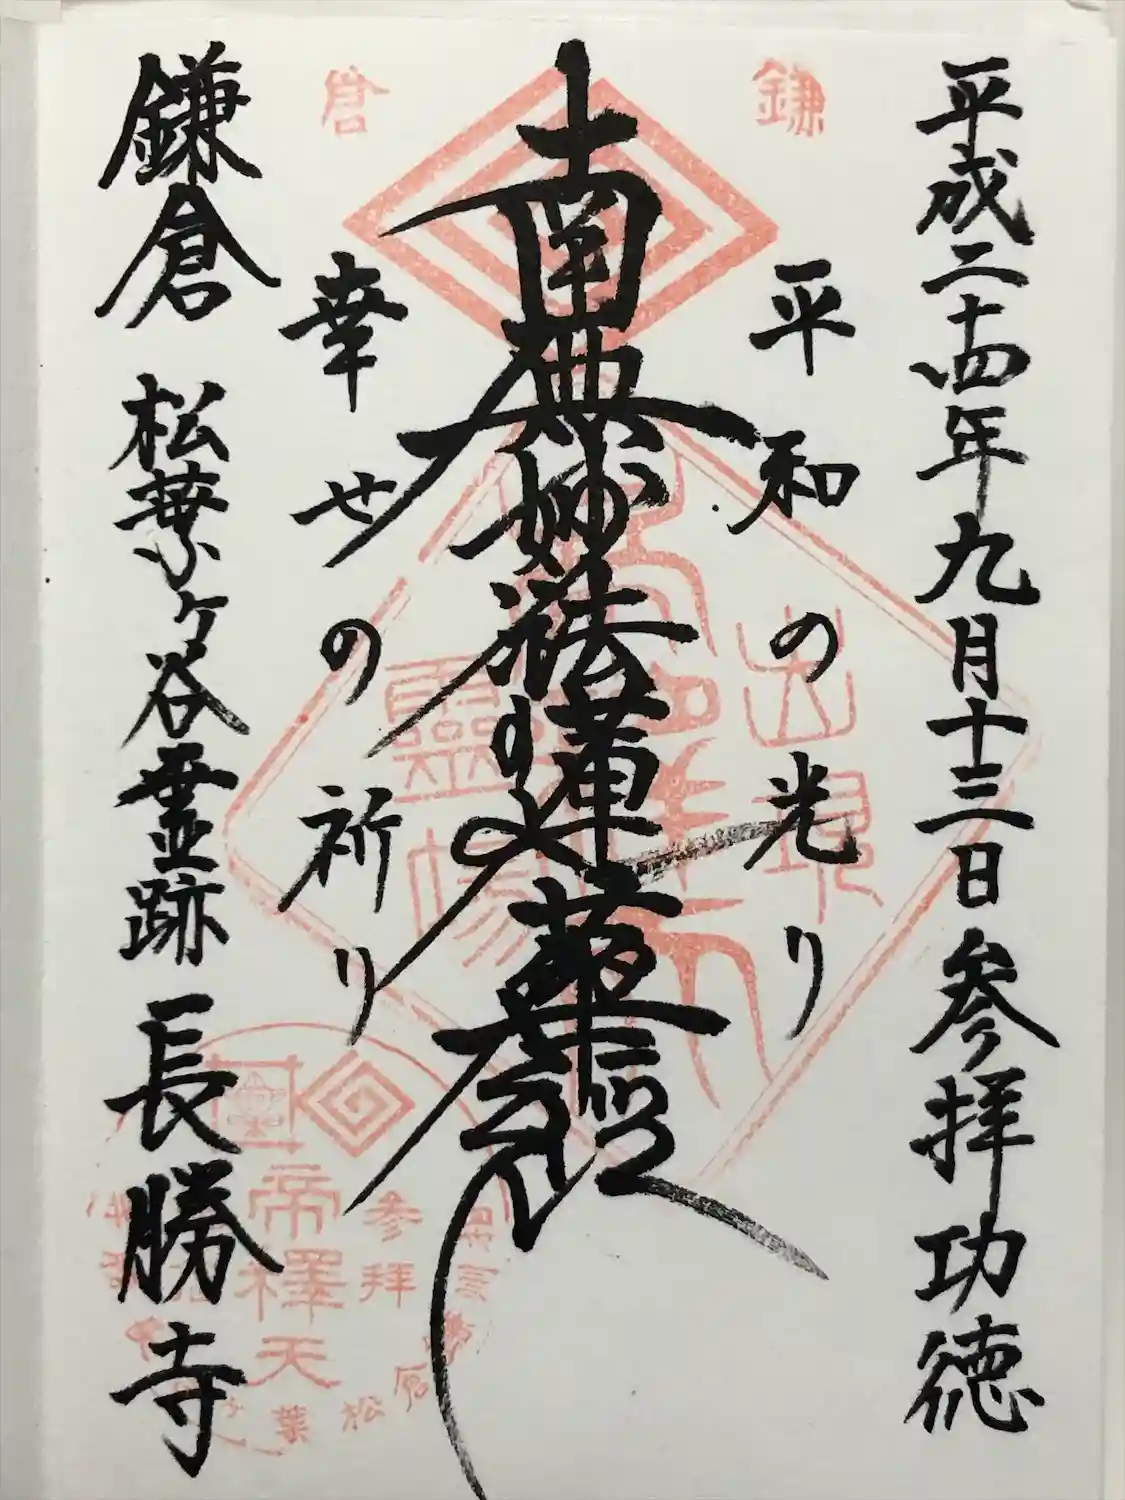 平成二十四年九月十三日 参拝功徳
平和の光り
南無妙法蓮華経
幸せの祈り
鎌倉 松葉ヶ谷霊跡 長勝寺
鎌
倉
出現
靈場
帝釋天
参拝
松葉